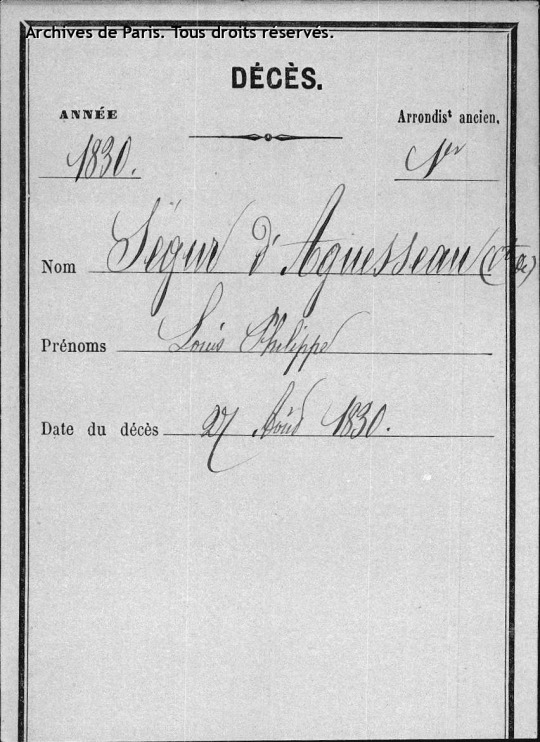 Archives de Paris. Tous droits réservés.
DÉCÈS.
ANNÉE Arrondisᵗ ancien.
1830. 1er
Nom Ségur d'Aguesseau (Cte de)
Prénoms Louis Philippe
Date du décès 27 Août 1830.